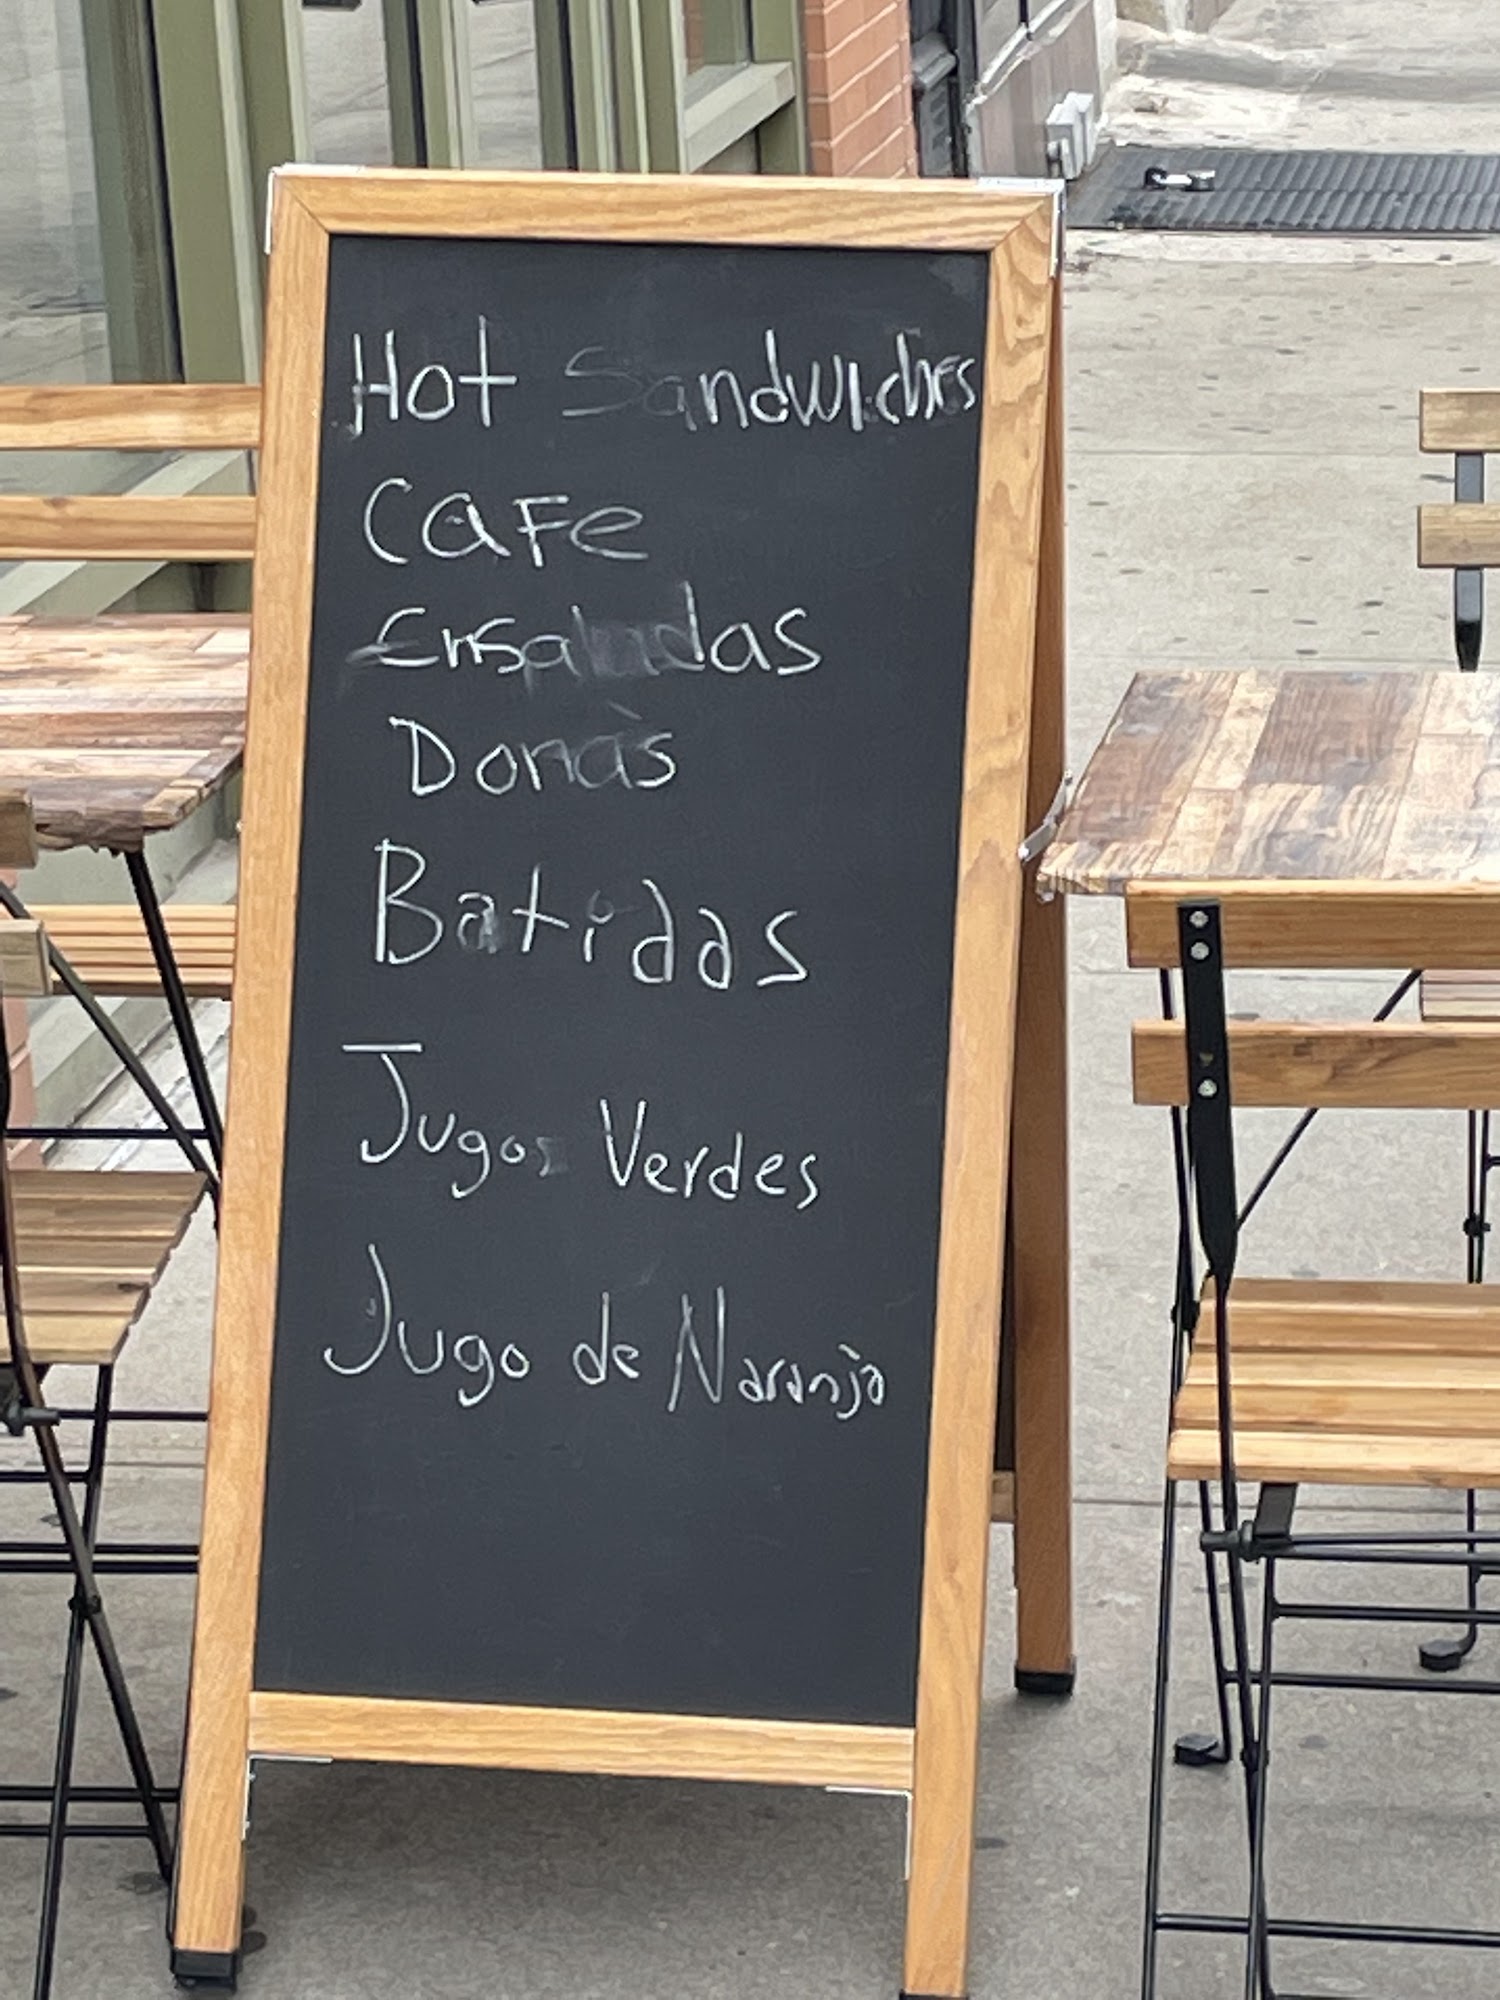 Hot Sandwiches
Cafe
Ensaladas
Donas
Batidas
Jugos Verdes
Jugo de Naranja